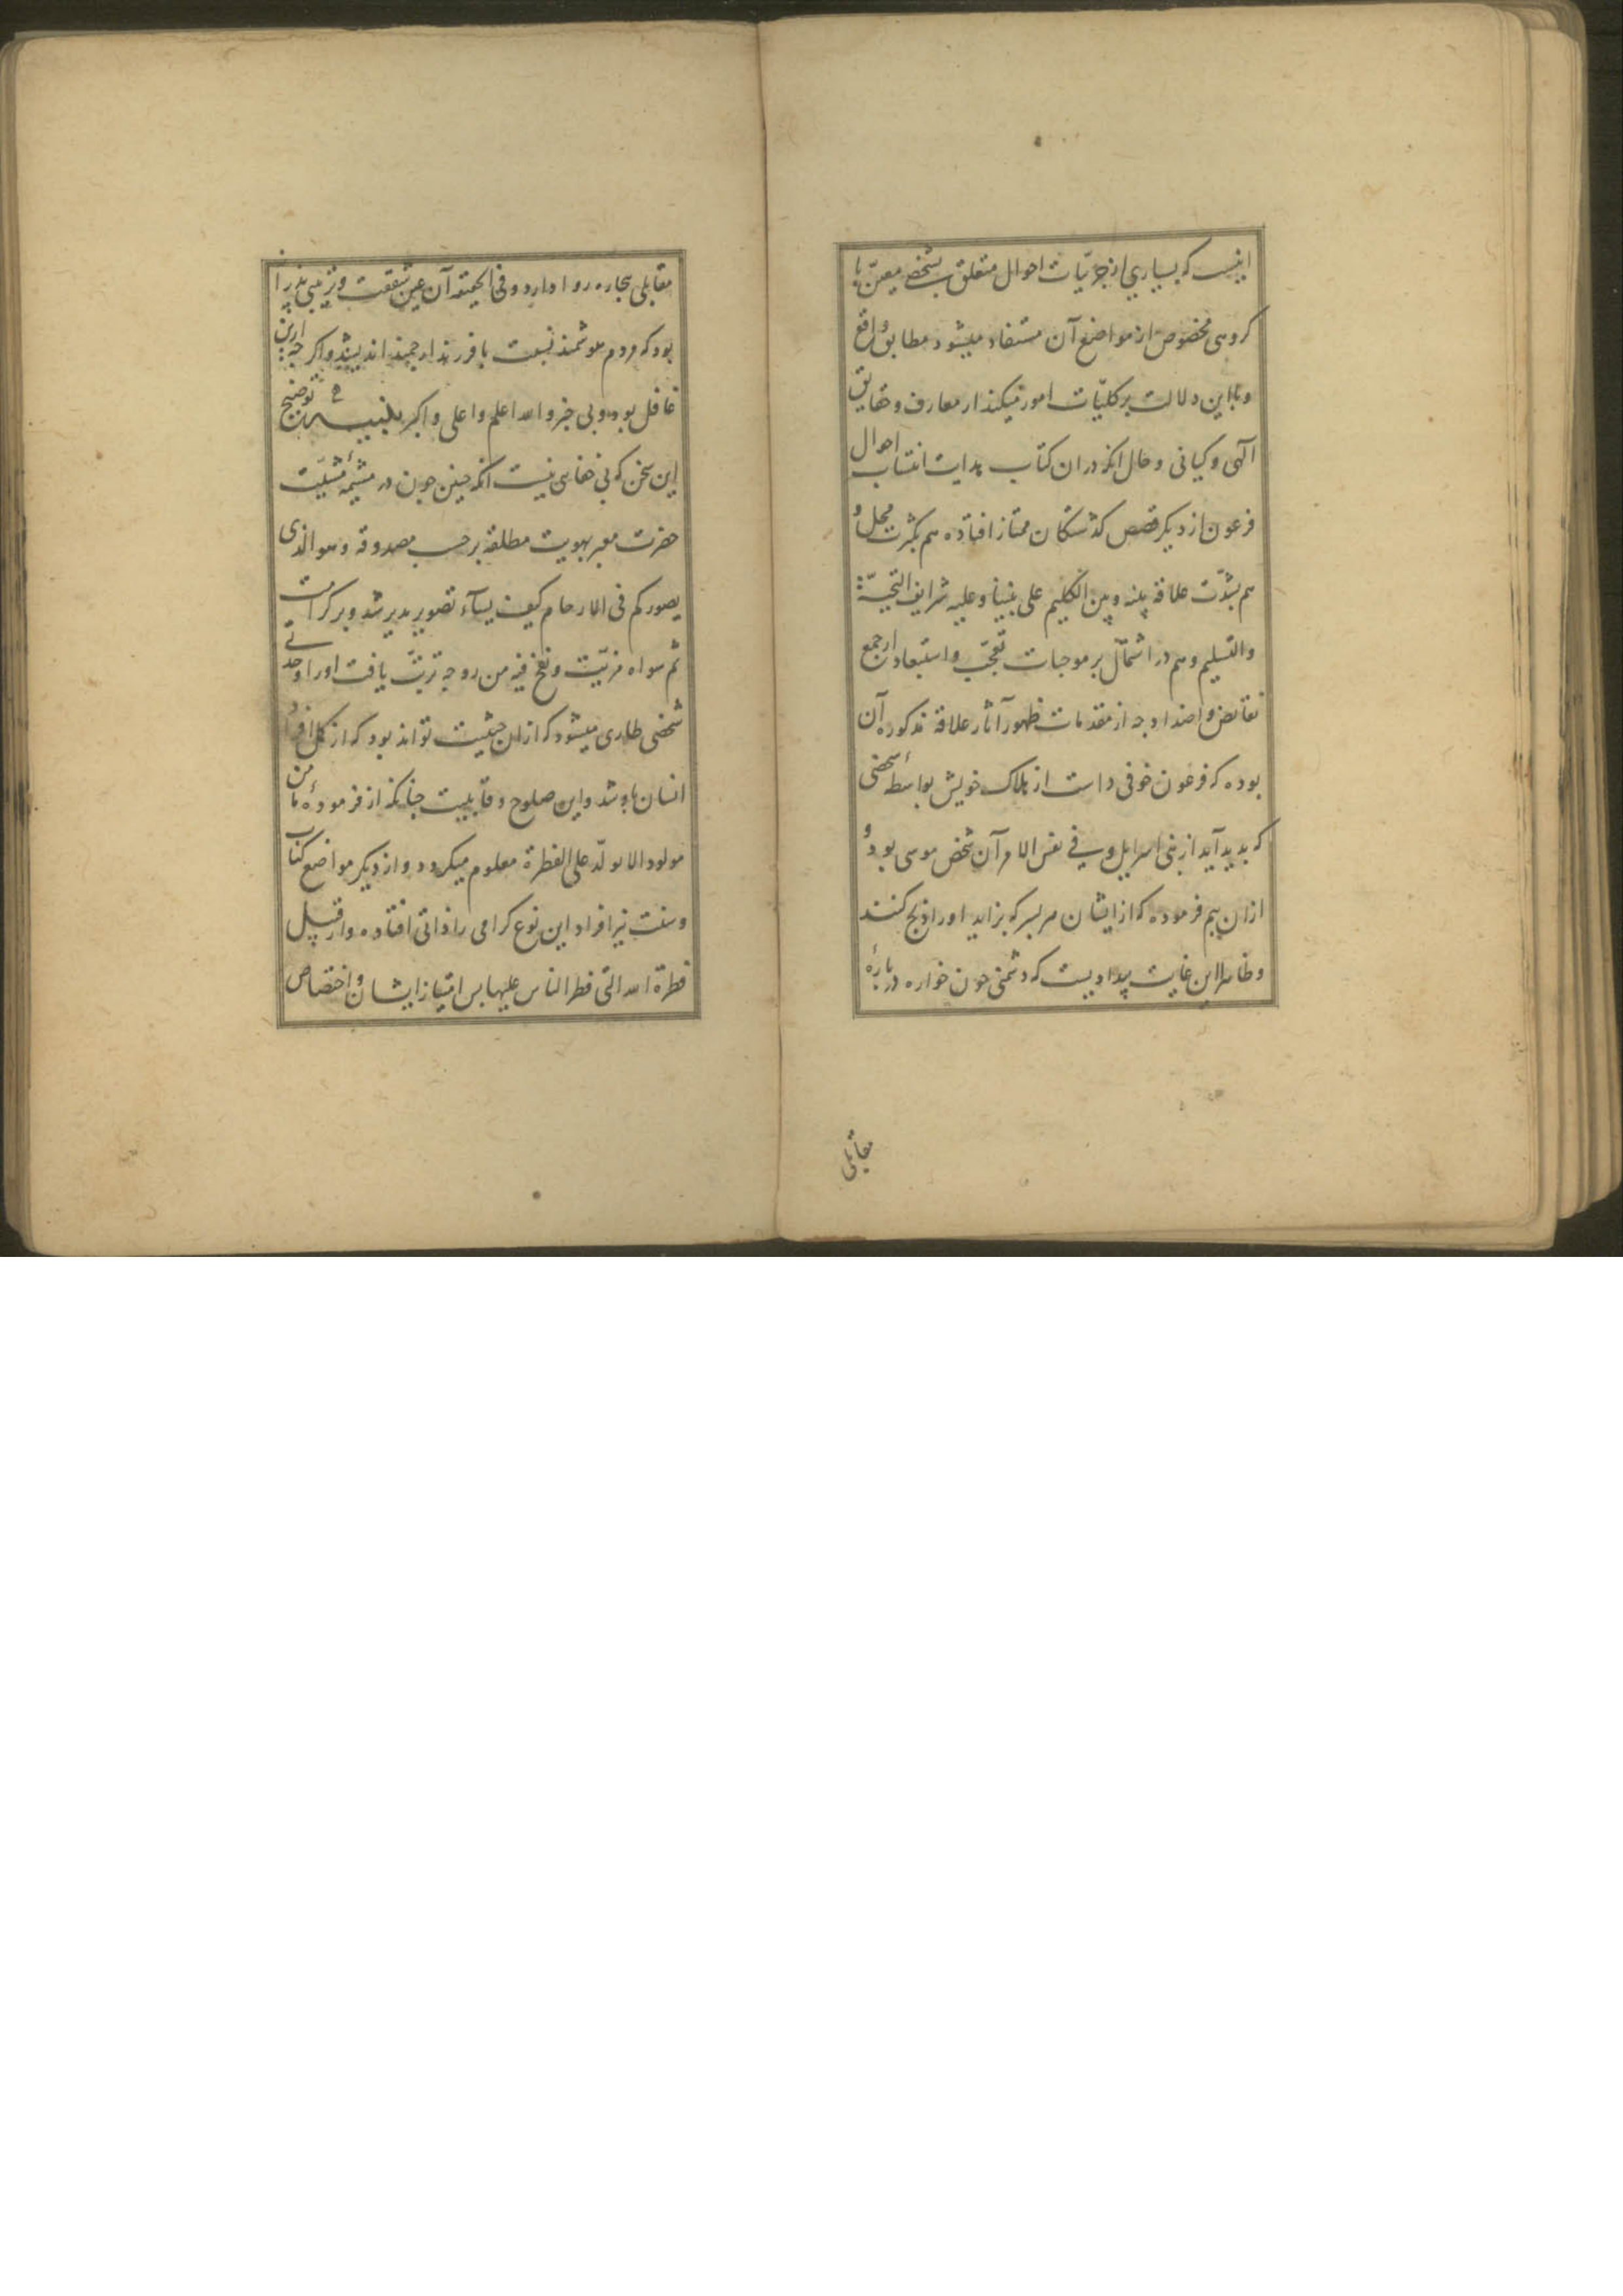 اینست که بسیاری از جزئیّات احوال متعلق بشخصی معیّن یا
کروهی مخصوص از مواضع آن مستفاد میشود مطابق واقع
و با این دلالت بر کلیّات امور میکند از معارف و حقایق
آلهی و کیانی و حال آنکه در ان کتاب هدایت انتساب احوال
فرعون از دیکر قصص کذشتکان ممتاز افتاده هم بکثرت محل و
هم بشدّت علاقه بینه و بین الکلیم علی نبینا و علیه شرایف التحیّة
والتسلیم و هم در اشتمال بر موجبات تعجّب و استبعاد از جمع
نقایض و اضداد چه از مقدمات ظهور آثار علاقه مذکوره آن
بوده که فرعون خوفی داشت از هلاک خویش بواسطهٔ شخصی
که بدید آید از بنی اسرایل و فی نفس الامر آن شخص موسی بود و
ازان بیم فرموده که از ایشان هر پسر که بزاید او را ذبح کنند
و ظاهرا این غایت بیدادیست که دشمنی خون خواره در بارهٔ
مقابلی
مقابلی بیجاره روا دارد و فی الحقیقه آن عین شفقت و تربیتی پدرانه
بود که مردم هوشمند نسبت با فرزند ارجمند اندیشند و اکر چه ازین
غافل بود و بی خبر والله اعلم و اعلی و اکبر توضیح
این سخن که بی خفایی نیست آنکه جنین چون در مشیمهٔ مشیّت
حضرت معبر بهویت مطلقه بر حسب مصدوقه و هو الذی
یصورکم فی الارحام کیف یشآء تصویر پذیر شد و بر کرامت
ثم سواه مزیّت و نفخ فیه من روحه ترتّب یافت او را وحدتی
شخصی طاری میشود که ازان حیثیت تواند بود که از کمل افراد
انسان باشد و این صلوح و قابلیت چنانکه از فرمودهٔ ما من
مولود الا یولد علی الفطرة معلوم میکردد و از دیکر مواضع کتاب
و سنت نیز افراد این نوع کرامی را ذاتی افتاده و از قبیل
فطرة الله التی فطر الناس علیها پس امتیاز ایشان و اختصاص